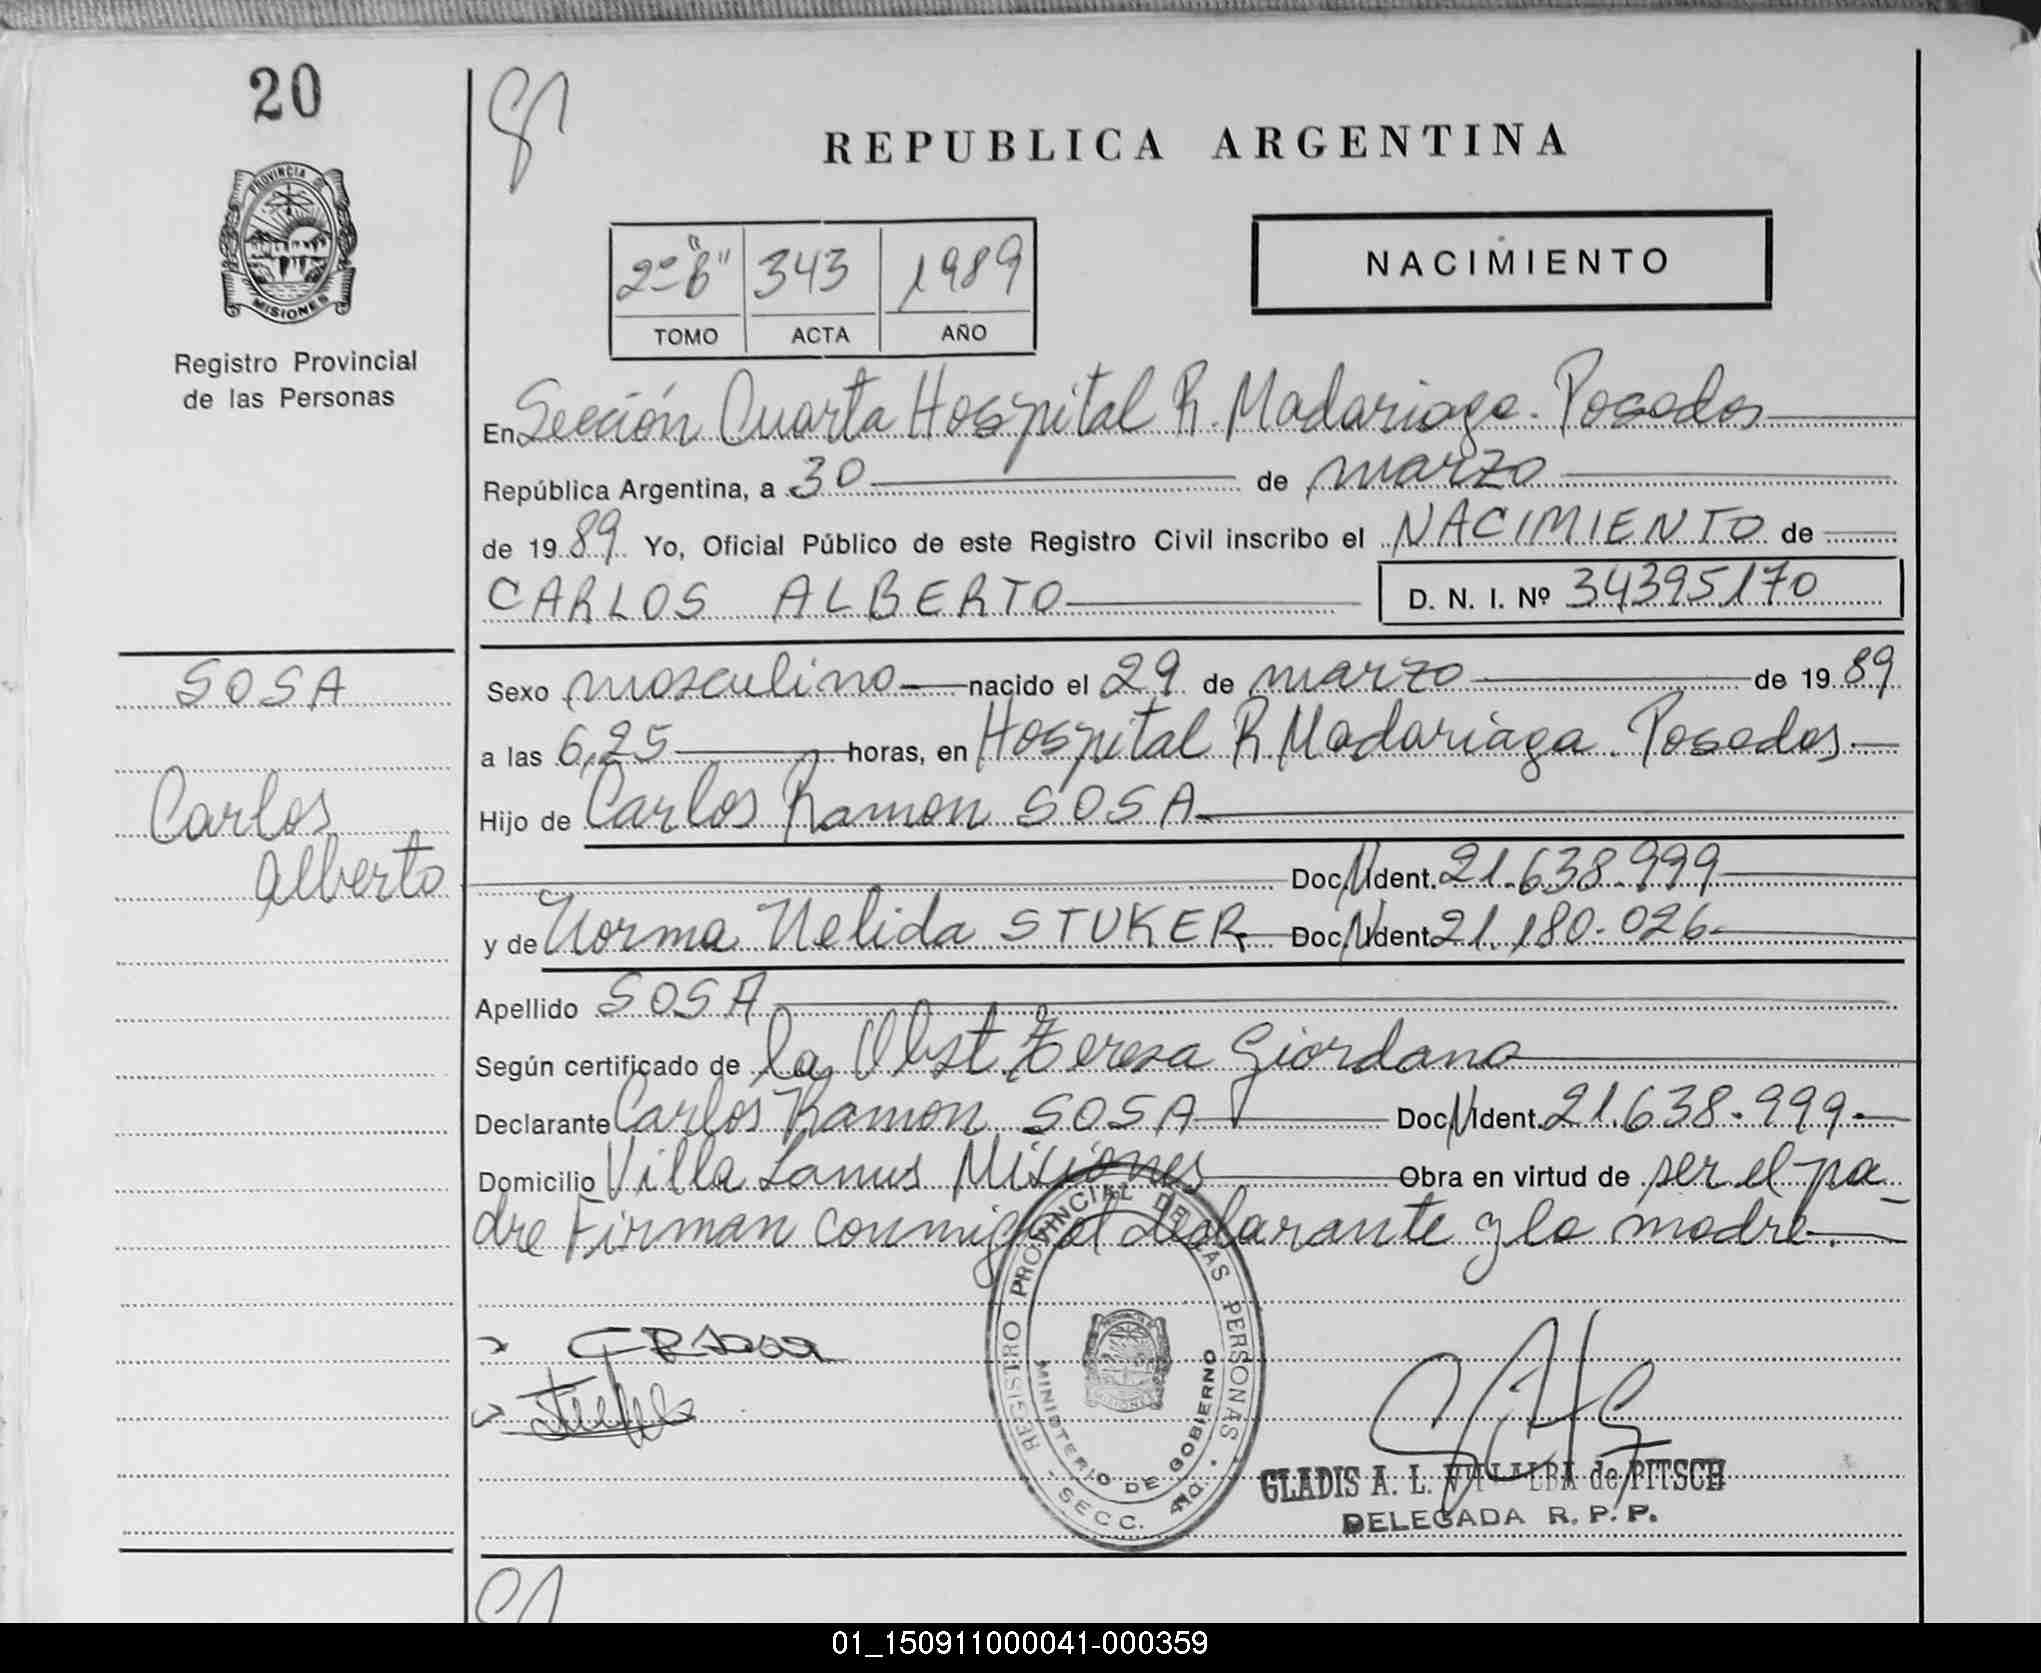 20
PROVINCIA DE
MISIONES
Registro Provincial
de las Personas
REPUBLICA ARGENTINA
2º "B" 343 1989
TOMO ACTA AÑO
NACIMIENTO
En Sección Cuarta Hospital R. Madariaga. Posadas
República Argentina, a 30 de marzo
de 1989 Yo, Oficial Público de este Registro Civil inscribo el NACIMIENTO de
CARLOS ALBERTO D. N. I. Nº 34395170
SOSA
Carlos
Alberto
Sexo masculino nacido el 29 de marzo de 1989
a las 6,25 horas, en Hospital R. Madariaga. Posadas.
Hijo de Carlos Ramon SOSA
Doc. N Ident. 21.638.999
y de Norma Nelida STUKER Doc. N Ident. 21.180.026
Apellido SOSA
Según certificado de la Obst. Teresa Giordano
Declarante Carlos Ramon SOSA Doc. N Ident. 21.638.999.
Domicilio Villa Lanus Misiones Obra en virtud de ser el pa-
dre Firman conmigo el declarante y la madre.
CR Sosa
REGISTRO PROVINCIAL DE LAS PERSONAS
MINISTERIO DE GOBIERNO
SECC. 4ta.
GLADIS A. L. VILLALBA de PITSCH
DELEGADA R. P. P.
01_150911000041-000359